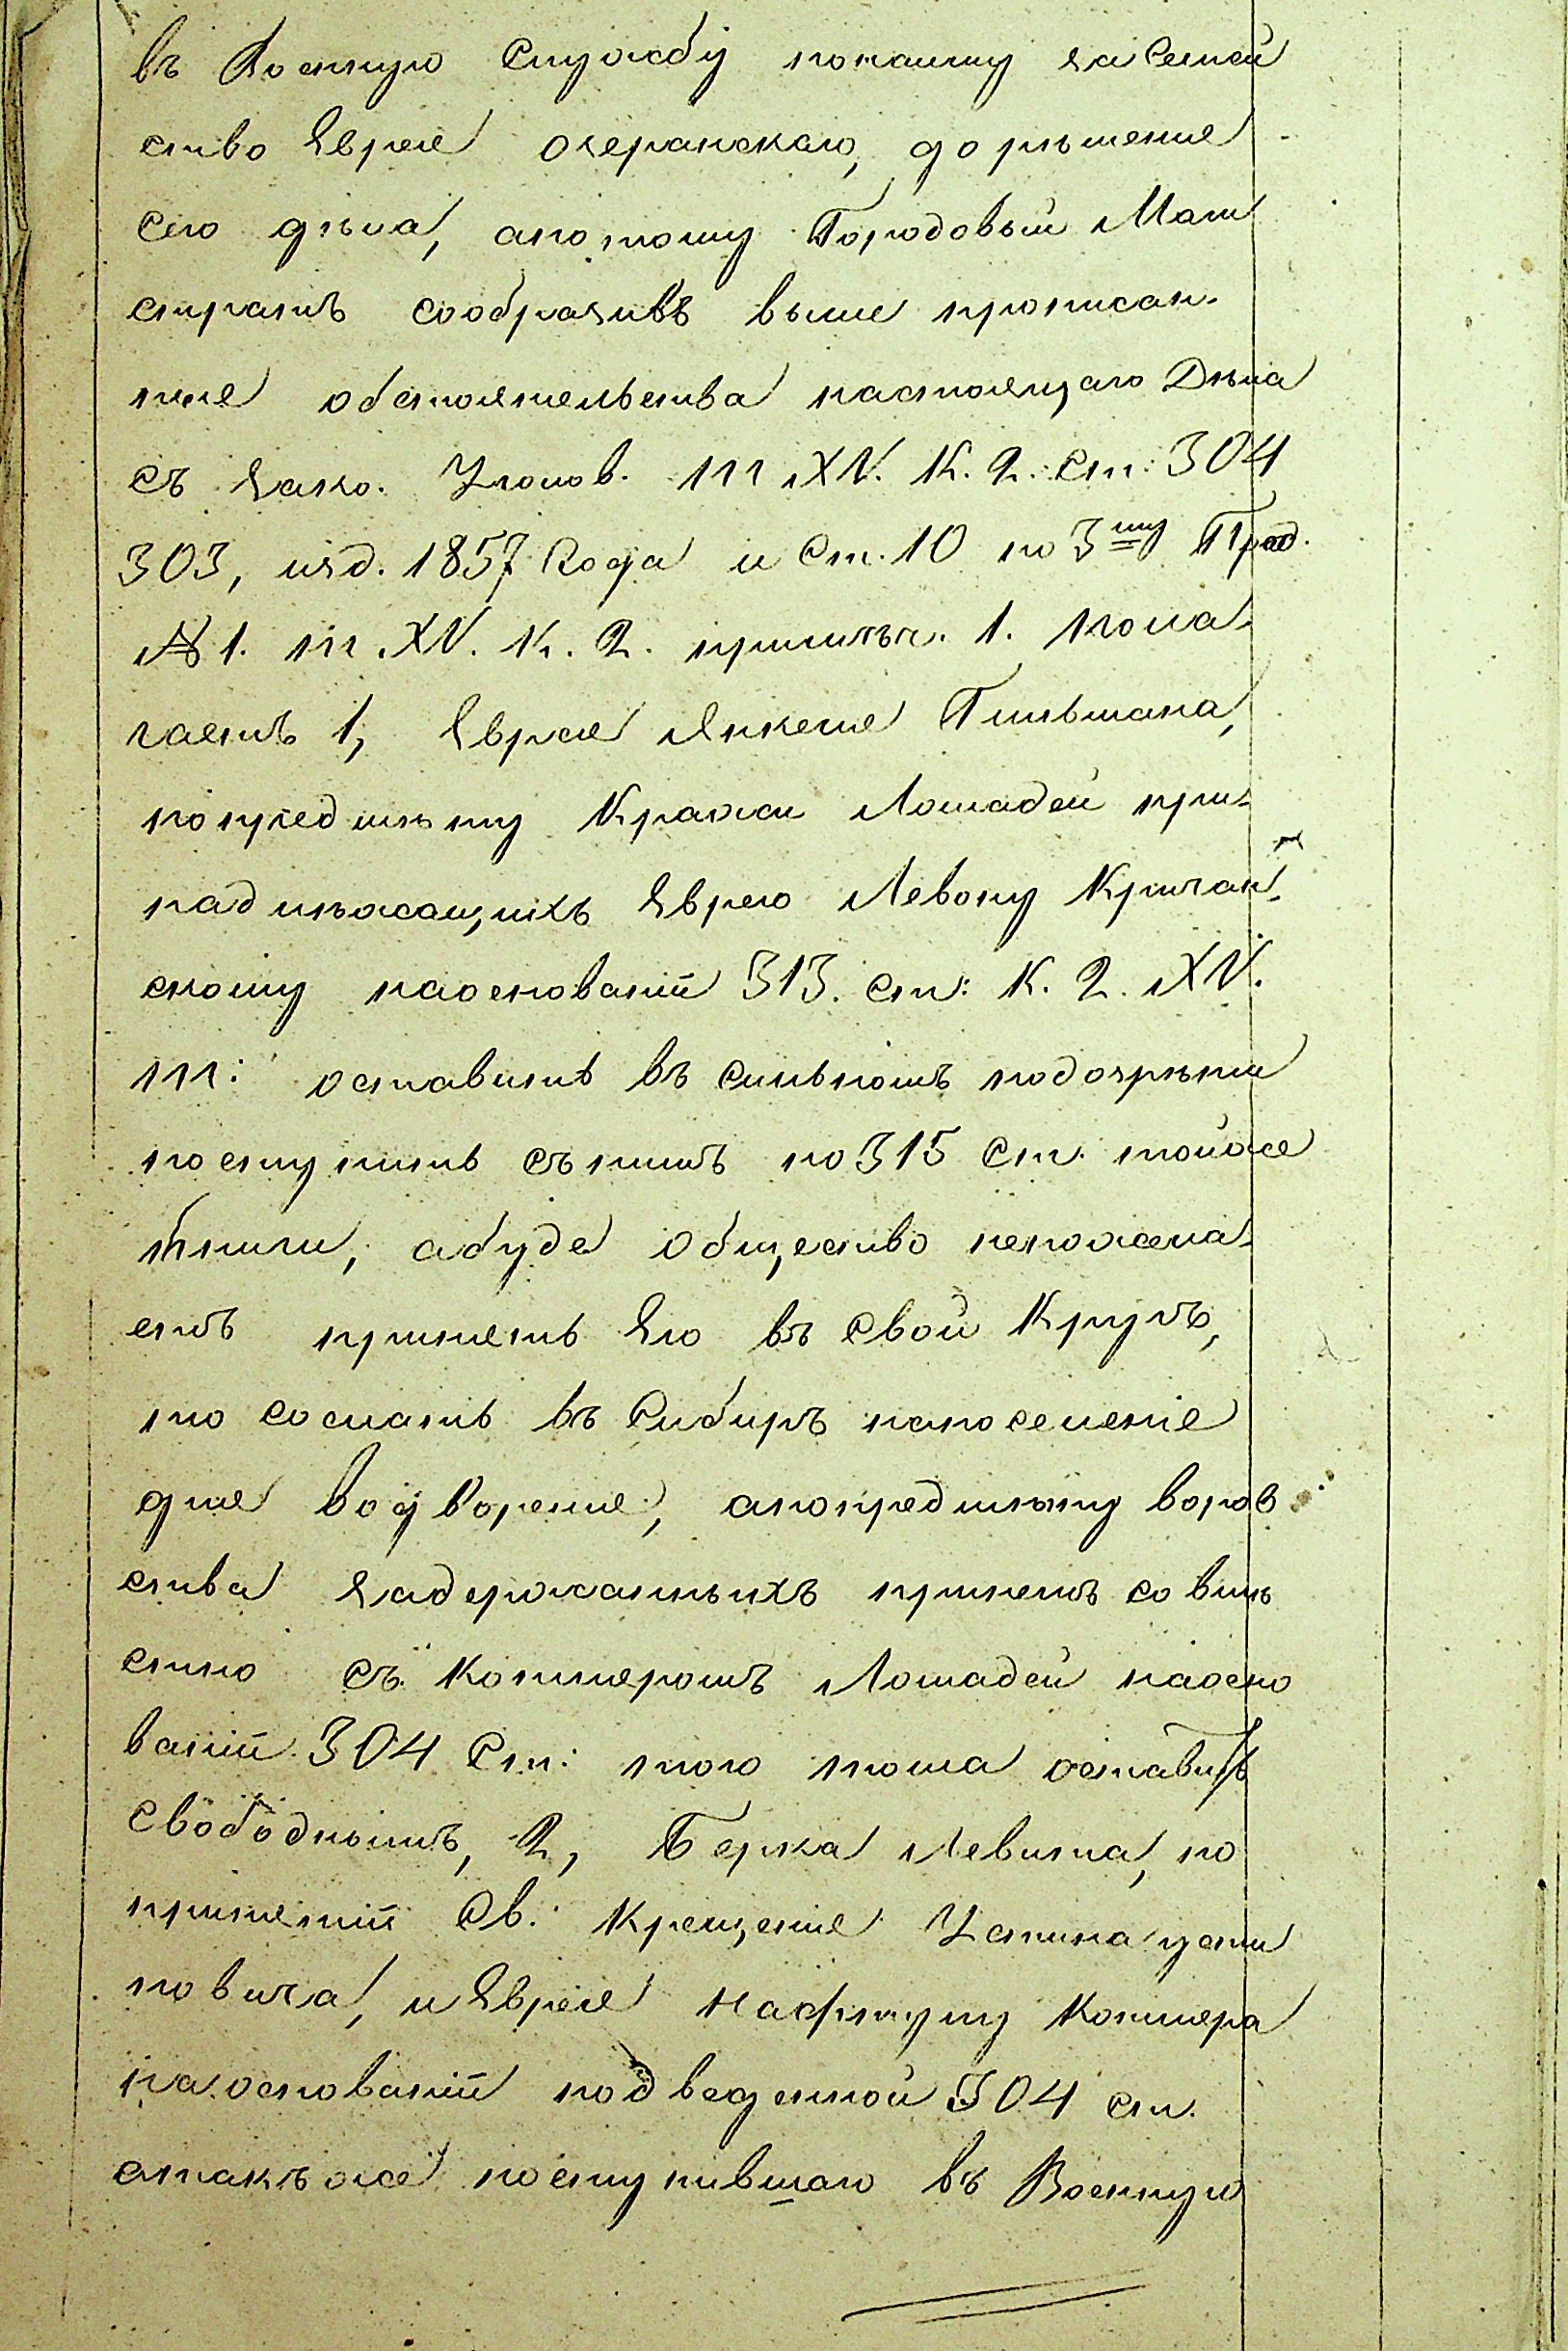 въ Военную Службу поканту за Семей
ство Еврея Озеранскаго, до рѣшенія
сего дѣла, апотому Городовый Маги
стратъ сообразивъ выше прописан-
ныя обстоятельства настоящаго Дѣла
съ Зако. Уголов. т XV. К. 2. ст: 304
303, изд. 1857 Года и Ст. 10 по 3му Прод.
№ 1. т XV. К. 2. примѣч. 1. пола-
гаетъ 1, Еврея Янкеля Гильмана,
попредмѣту Кражи Лошадей при-
надлѣжащихъ Еврею Левону Кричан-
скому наоснованіи 313. ст: К. 2. XV.
т: оставить въ сильномъ подозрѣніи
поступить съ нимъ по 315 ст. тойже
Книги, абуде Общество непожела-
етъ принять Его въ свой Кругъ,
то сослать въ Сибирь напоселеніе
для водворенія, апопредмѣту воров
ства Задержанныхъ принемъ совмѣ
стно съ Котляромъ Лошадей наосно
ваніи 304 Ст: того тома оставить
свободнымъ, 2, Берка Левита, по
принятіи Св. Крещенія Устина усти
новича, и Еврея Нафтулу Котляра
наоснованіи подведенной 304 ст.
атакъже поступившаго въ Военную